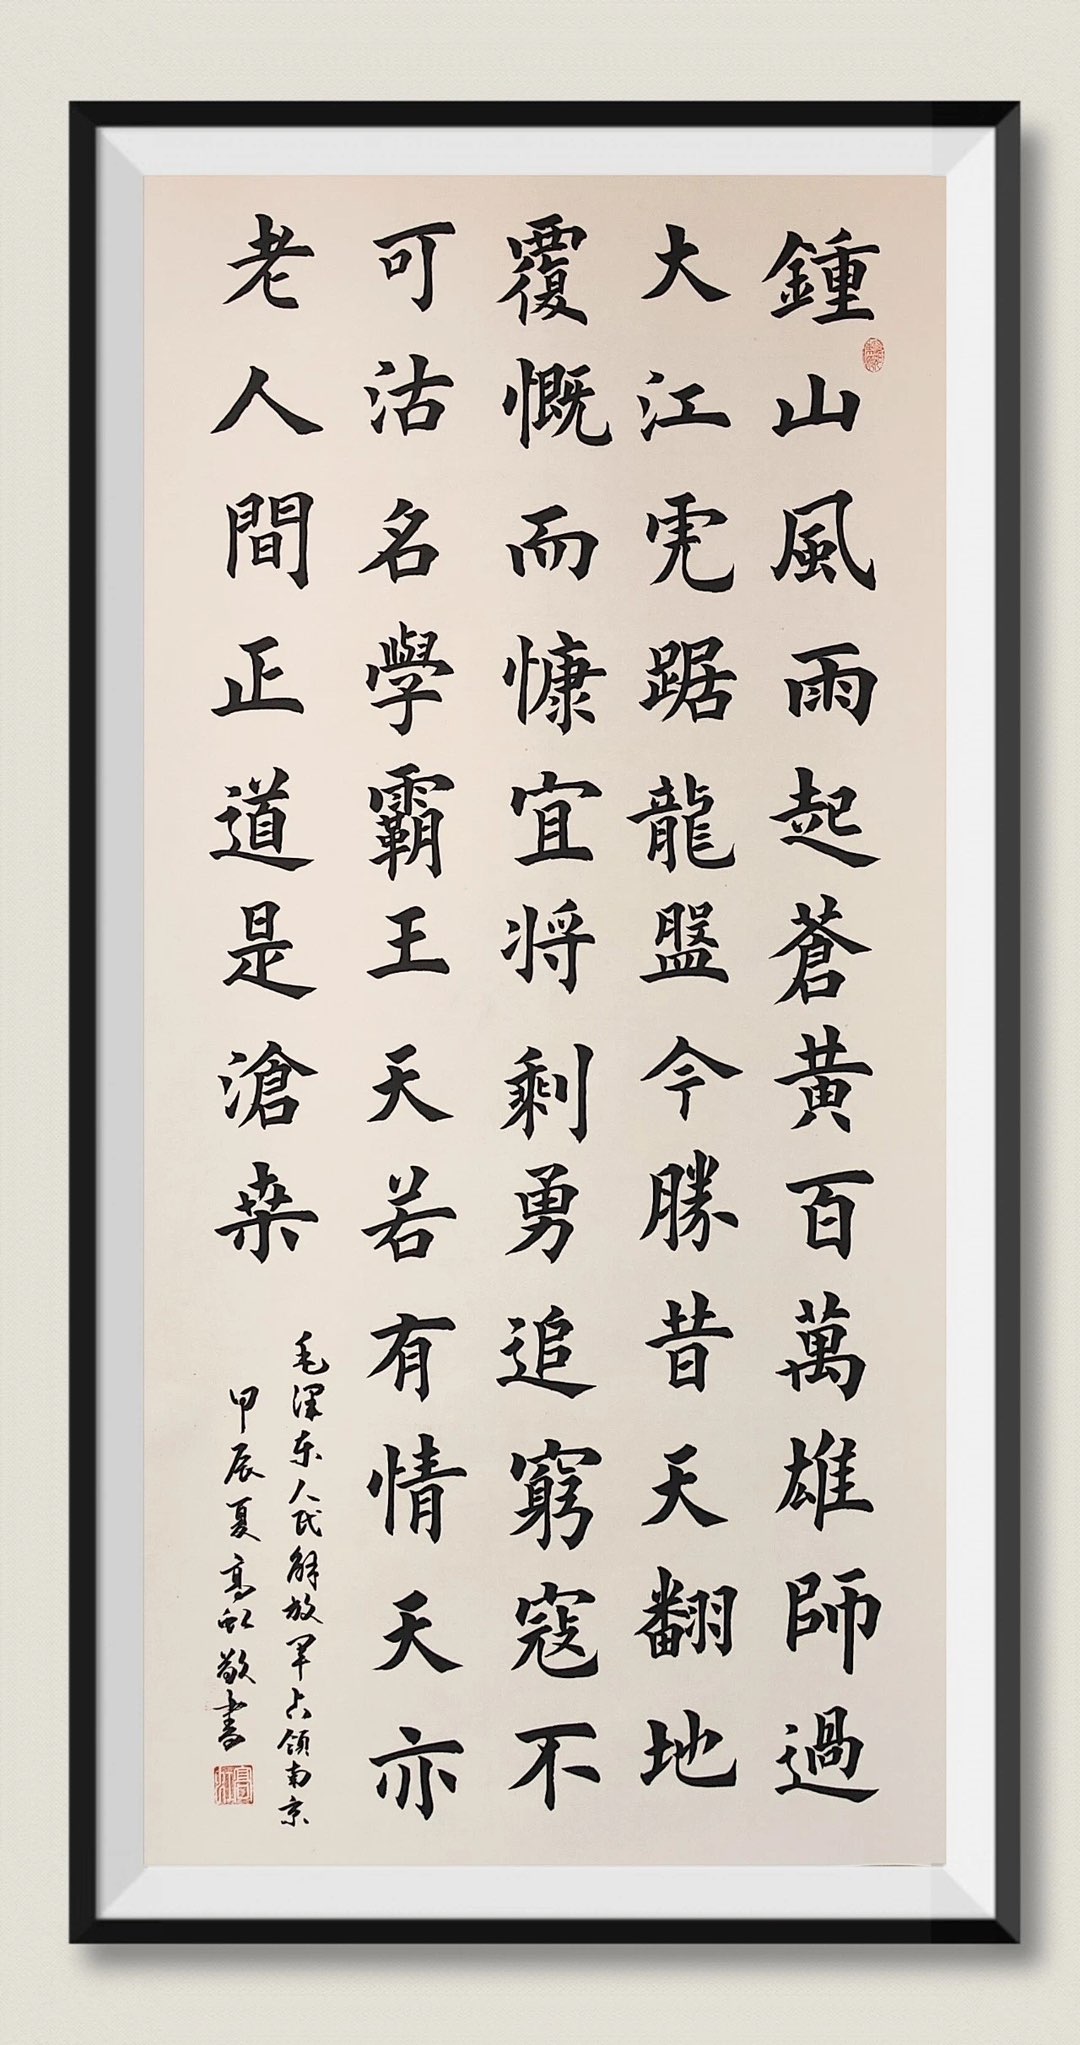 鍾山風雨起蒼黃百萬雄師過
大江虎踞龍盤今勝昔天翻地
覆慨而慷宜将剩勇追窮寇不
可沽名學霸王天若有情天亦
老人間正道是滄桒
毛澤东人民解放军占領南京
甲辰夏高虹敬書